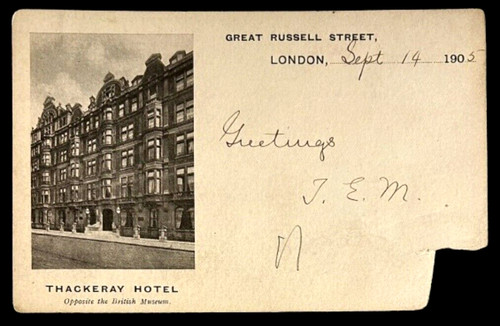 GREAT RUSSELL STREET,
LONDON, Sept 14 1905
Greetings
T. E. M.
THACKERAY HOTEL
Opposite the British Museum.